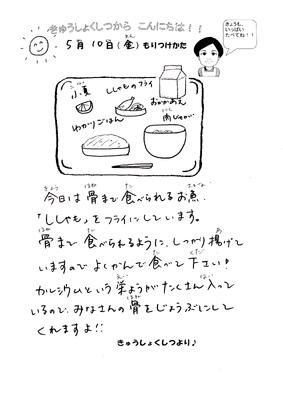 きゅうしょくしつから こんにちは!!
きょうも、
いっぱい
たべてね!!
5月10日(金)もりつけかた
きん
小夏
こなつ
ししゃものフライ
おかかあえ
わかりごはん
肉じゃが
にく
きょう ほね た さかな
今日は骨まで食べられるお魚、
「ししゃも」をフライにしています。
ほね た あ
骨まで食べられるように、しっかり揚げて
た くだ
いますので よくかんで食べて下さい!
えい はい
カルシウムという栄ようがたくさん入って
ほね
いるので、みなさんの骨をじょうぶにして
くれますよ!!
きゅうしょくしつより♪